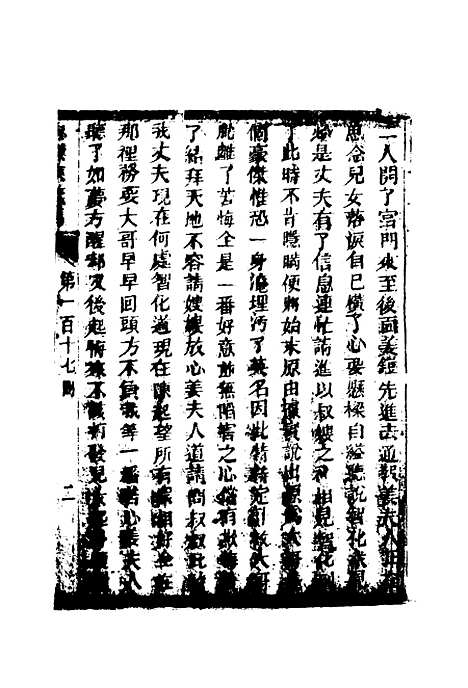 二人開了宮門來至後面姜鎧先進去通報姜夫人正在
思念兒女落淚自己橫了心要懸樑自縊聽說智化來見
必是丈夫有了信息連忙請進以叔嫂之禮相見智化到
了此時不肯隱瞞便將始末原由據實說出原為大哥
個豪傑惟恐一身淹埋污了英名因此特特定計救大哥
脫離了苦海全是一番好意並無陷害之心倘有欺
了結拜天地不容請嫂嫂放心姜夫人道請問叔叔
我丈夫現在何處智化道現在陳起望所有眾相好全在
那裡務要大哥早早回頭方不負我等一番苦心姜夫人
聽了如夢方醒却又後起悔來不該打發兒女起
第一百十七回
二